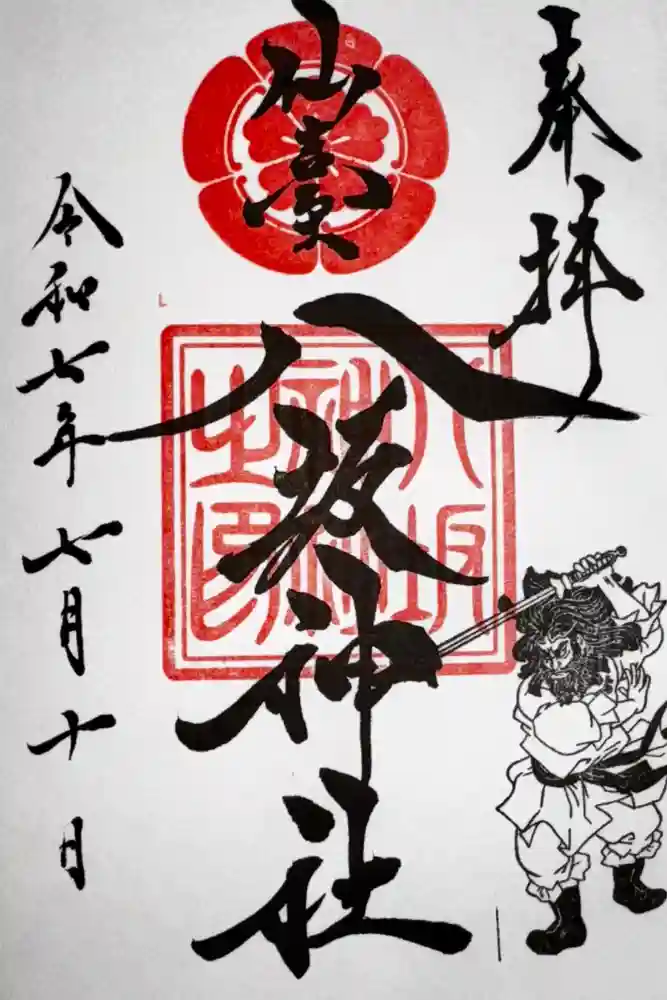 奉拝
仙臺
八坂神社
八坂
神社
之印
令和七年七月十日